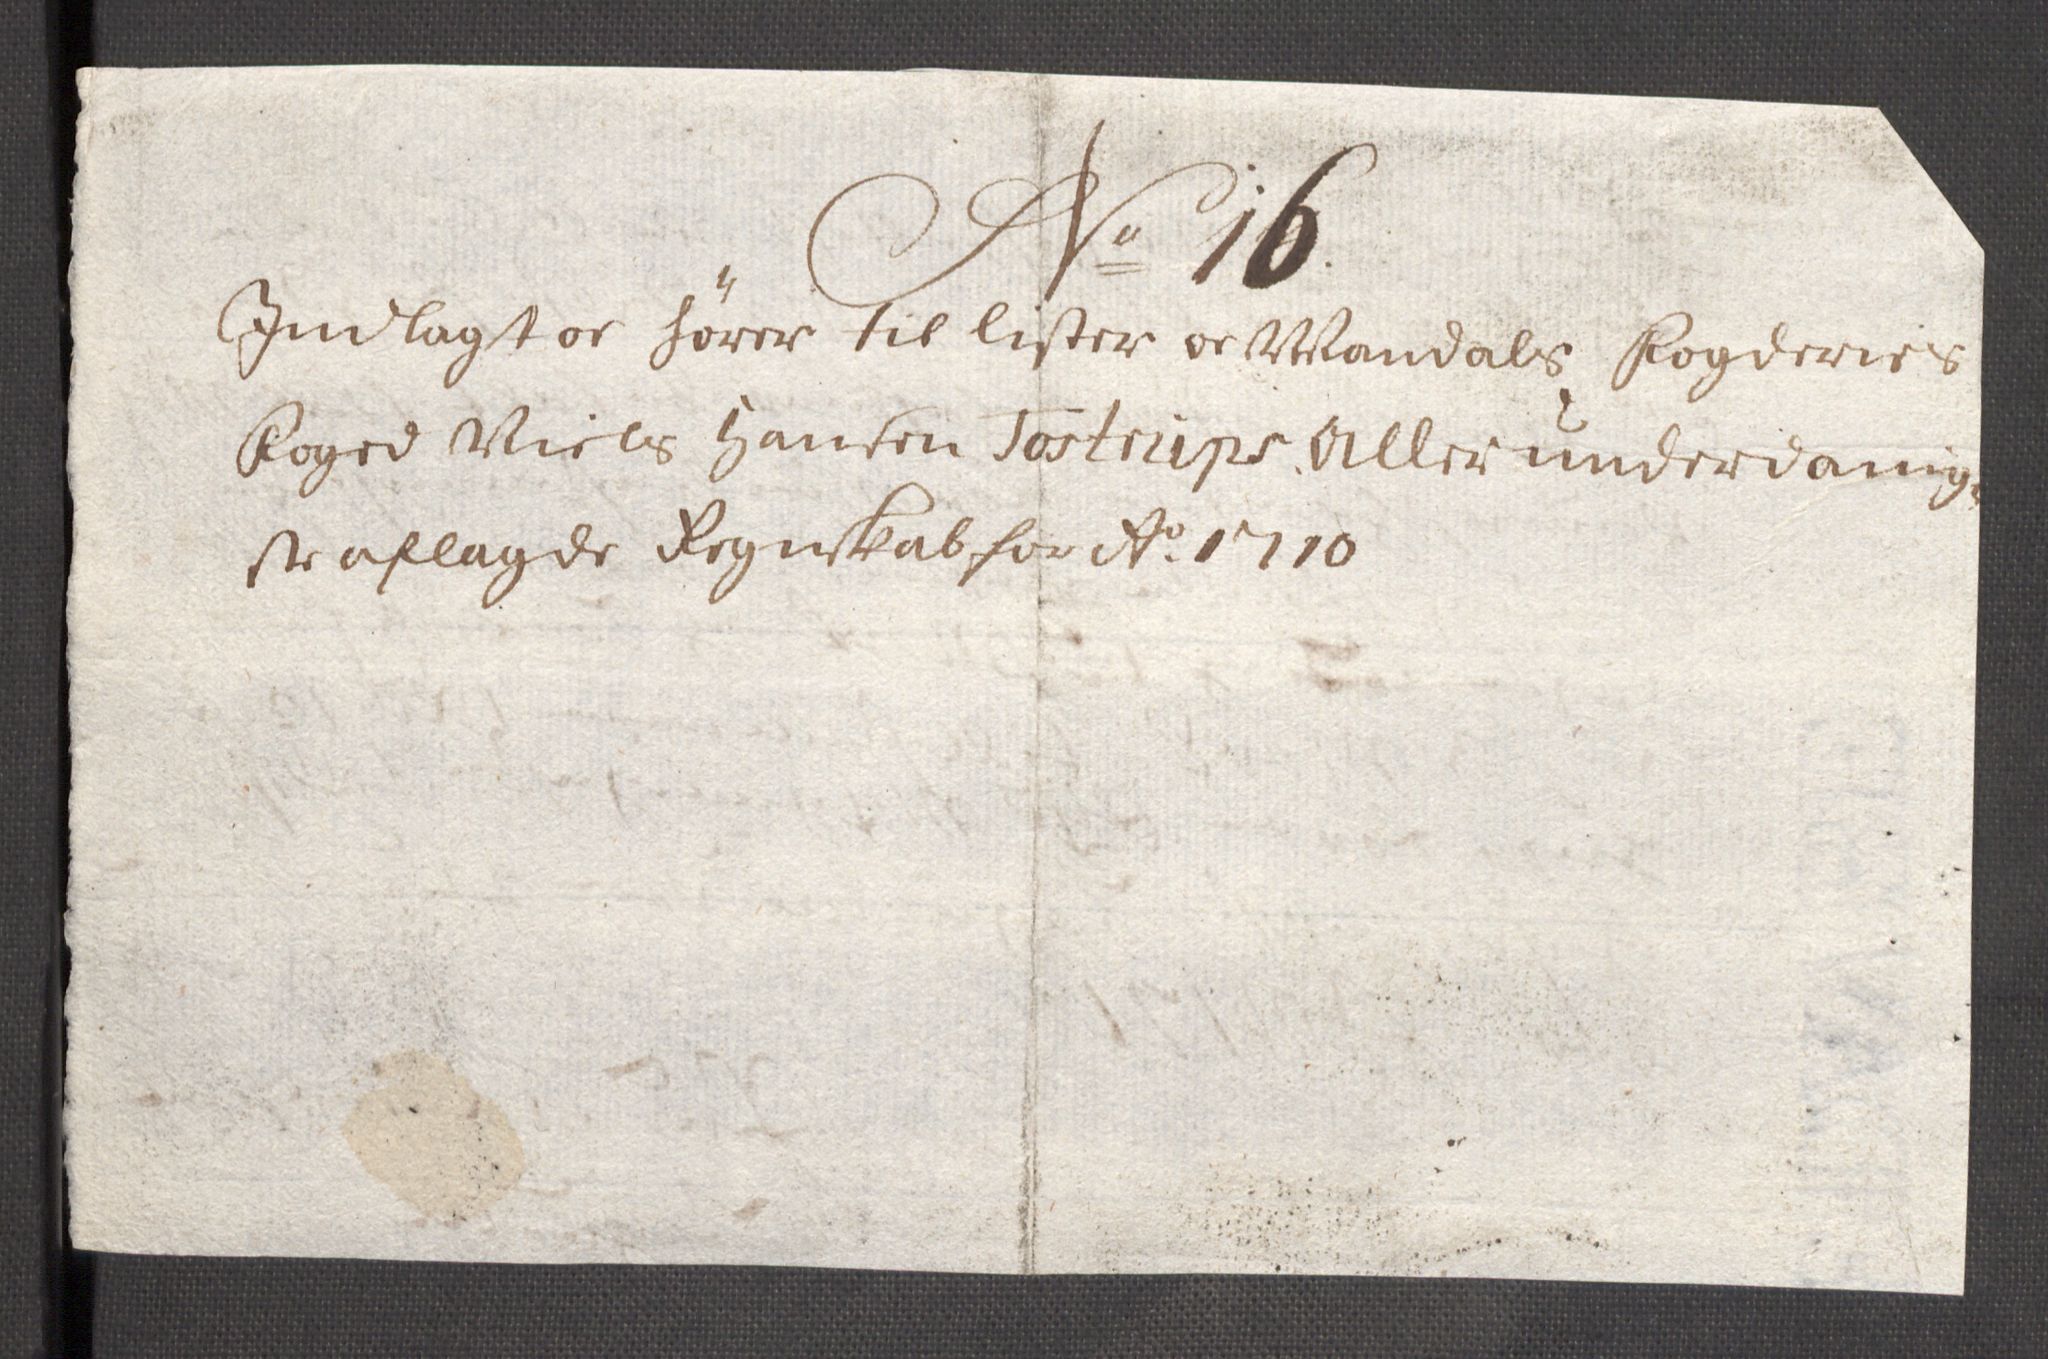 No 16.
Indlagt oc hörer til Lister oc Mandals Fogderies
Foged Niels Hansen Tostrups Allerunderdanig-
ste aflagde Regnskab for Ao. 1710